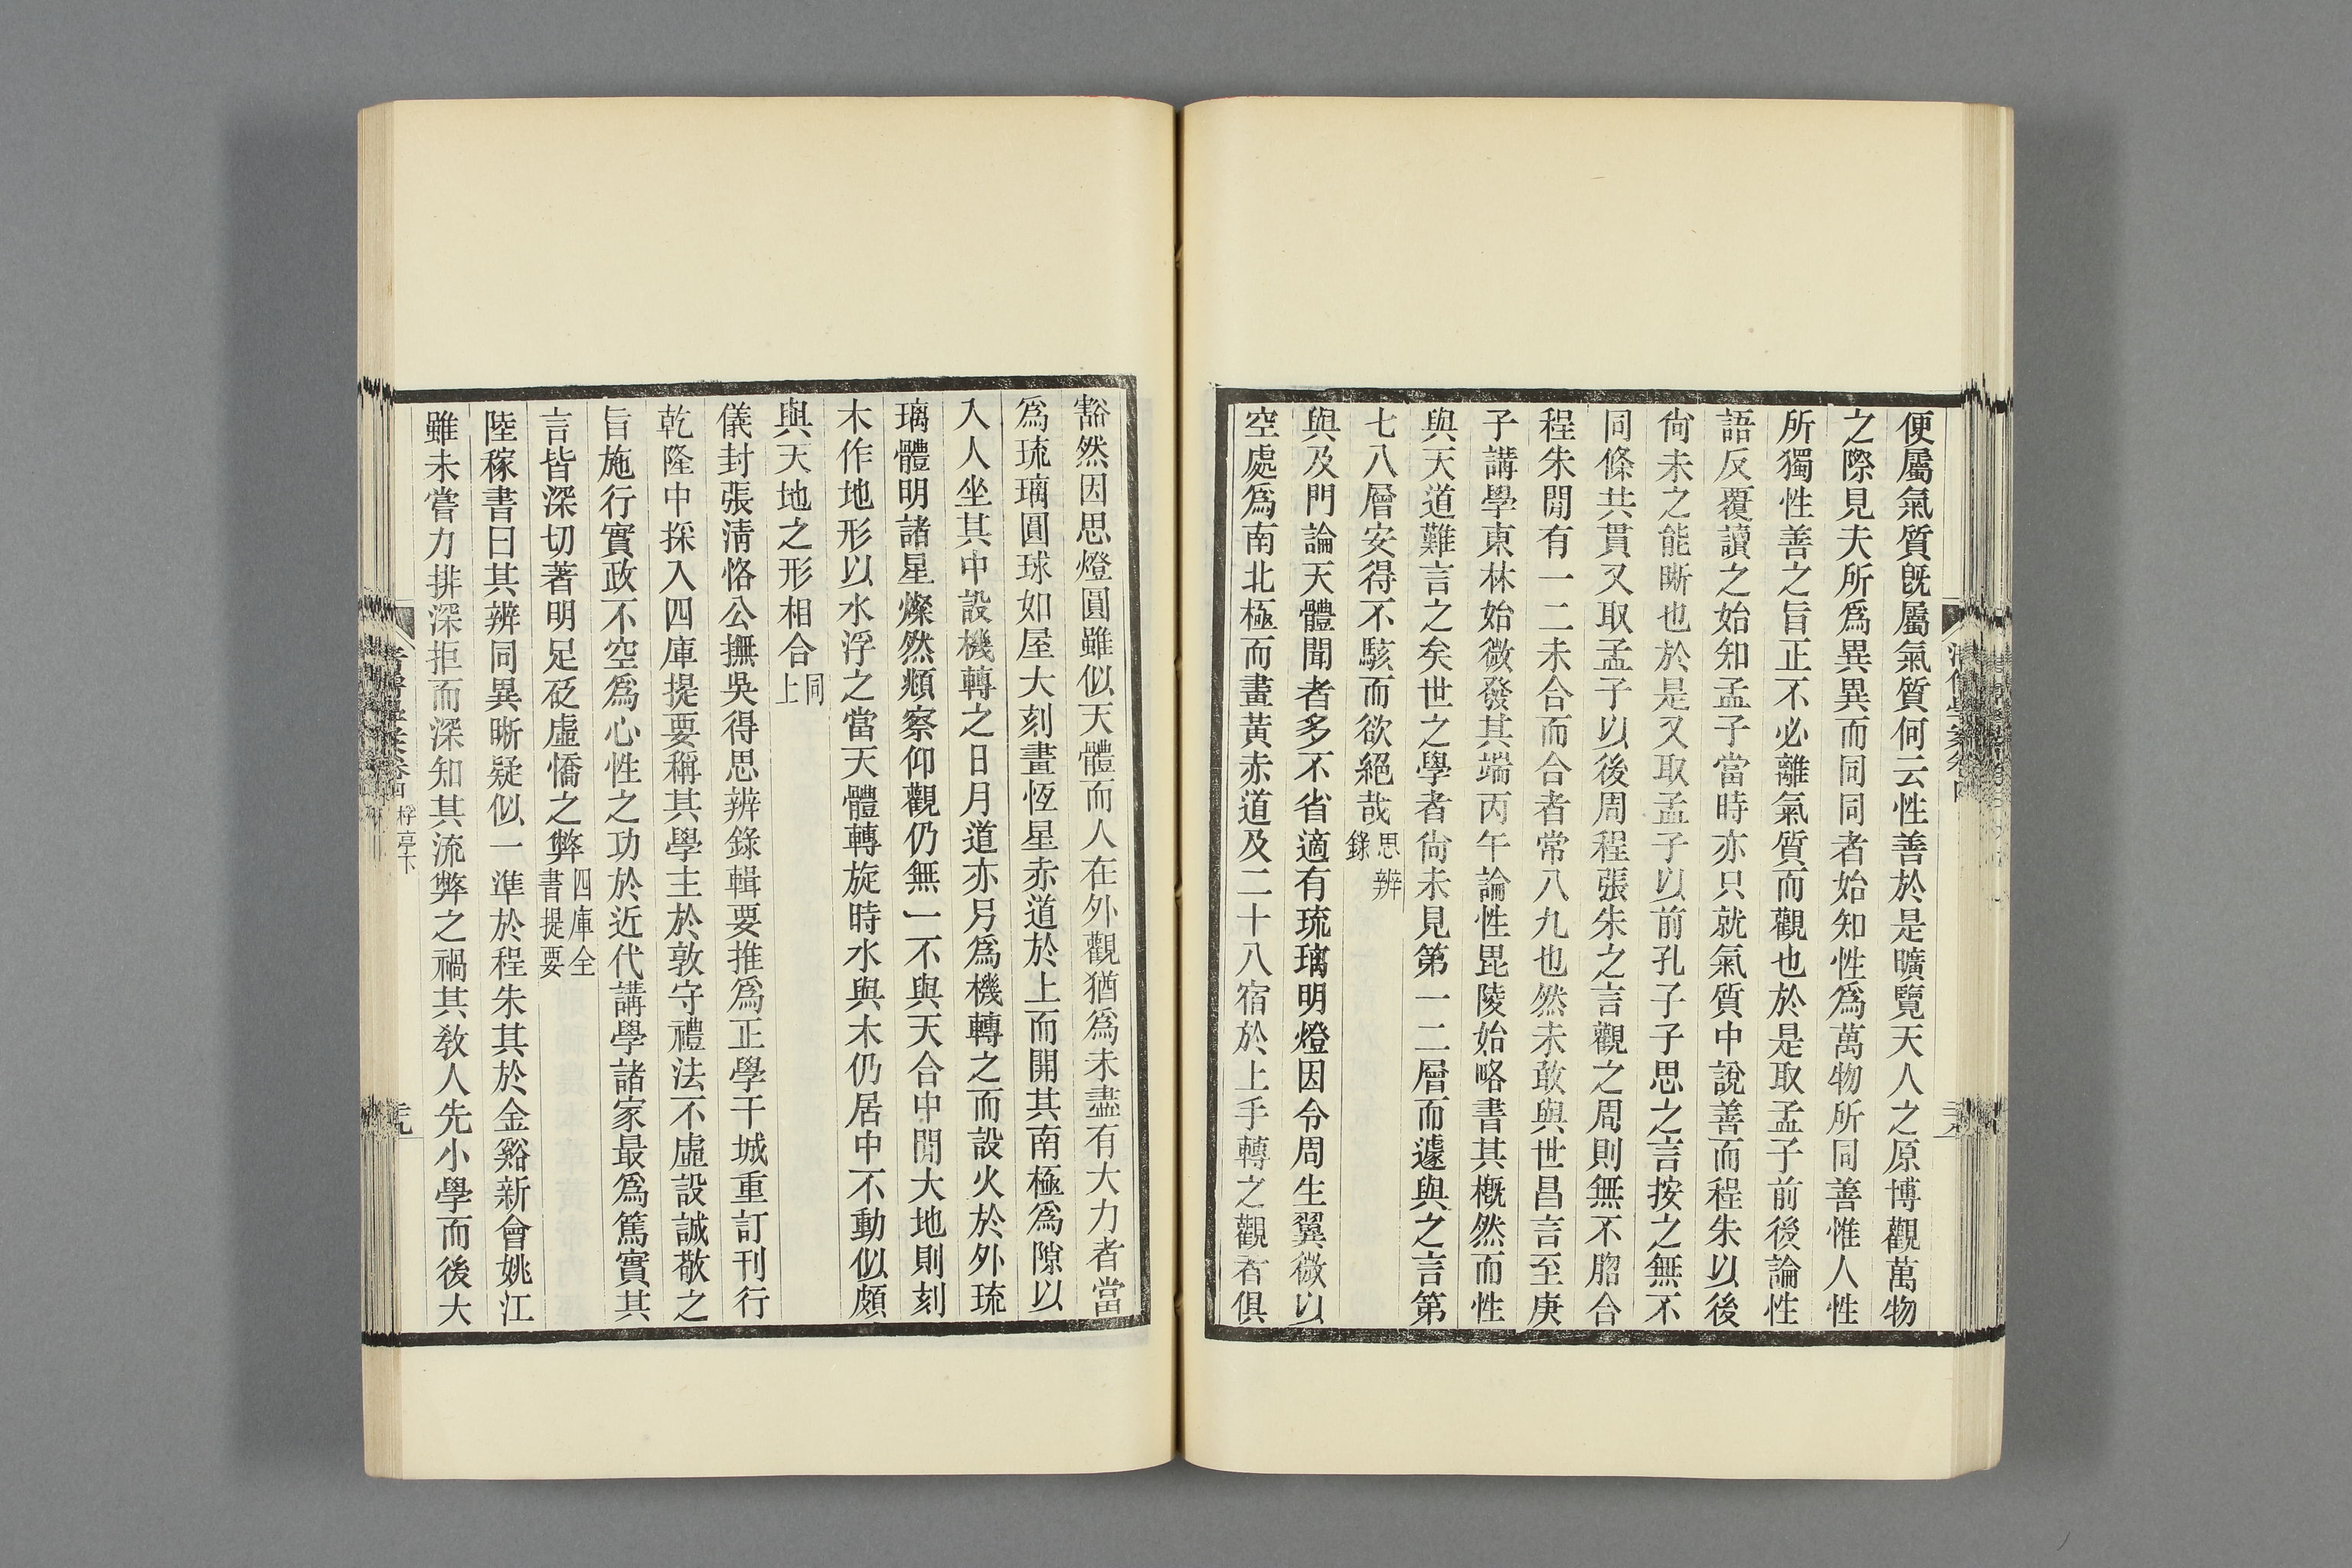 便屬氣質旣屬氣質何云性善於是曠覽天人之原博觀萬物
之際見夫所爲異異而同同者始知性爲萬物所同善惟人性
所獨性善之旨正不必離氣質而觀也於是取孟子前後論性
語反覆讀之始知孟子當時亦只就氣質中說善而程朱以後
尙未之能晰也於是又取孟子以前孔子子思之言按之無不
同條共貫又取孟子以後周程張朱之言觀之周則無不脗合
程朱閒有一二未合而合者常八九也然未敢與世昌言至庚
子講學東林始微發其端丙午論性毘陵始略書其槪然而性
與天道難言之矣世之學者尙未見第一二層而遽與之言第
七八層安得不駭而欲絕哉思辨
錄
與及門論天體聞者多不省適有琉璃明燈因令周生翼微以
空處爲南北極而畫黃赤道及二十八宿於上手轉之觀者俱
豁然因思燈圓雖似天體而人在外觀猶爲未盡有大力者當
爲琉璃圓球如屋大刻畫恆星赤道於上而開其南極爲隙以
入人坐其中設機轉之日月道亦另爲機轉之而設火於外琉
璃體明諸星燦然頫察仰觀仍無一不與天合中閒大地則刻
木作地形以水浮之當天體轉旋時水與木仍居中不動似頗
與天地之形相合同
上
儀封張淸恪公撫吳得思辨錄輯要推爲正學干城重訂刊行
乾隆中採入四庫提要稱其學主於敦守禮法不虛設誠敬之
旨施行實政不空爲心性之功於近代講學諸家最爲篤實其
言皆深切著明足砭虛憍之弊四庫全
書提要
陸稼書曰其辨同異晰疑似一準於程朱其於金谿新會姚江
雖未嘗力排深拒而深知其流弊之禍其敎人先小學而後大
桴亭下